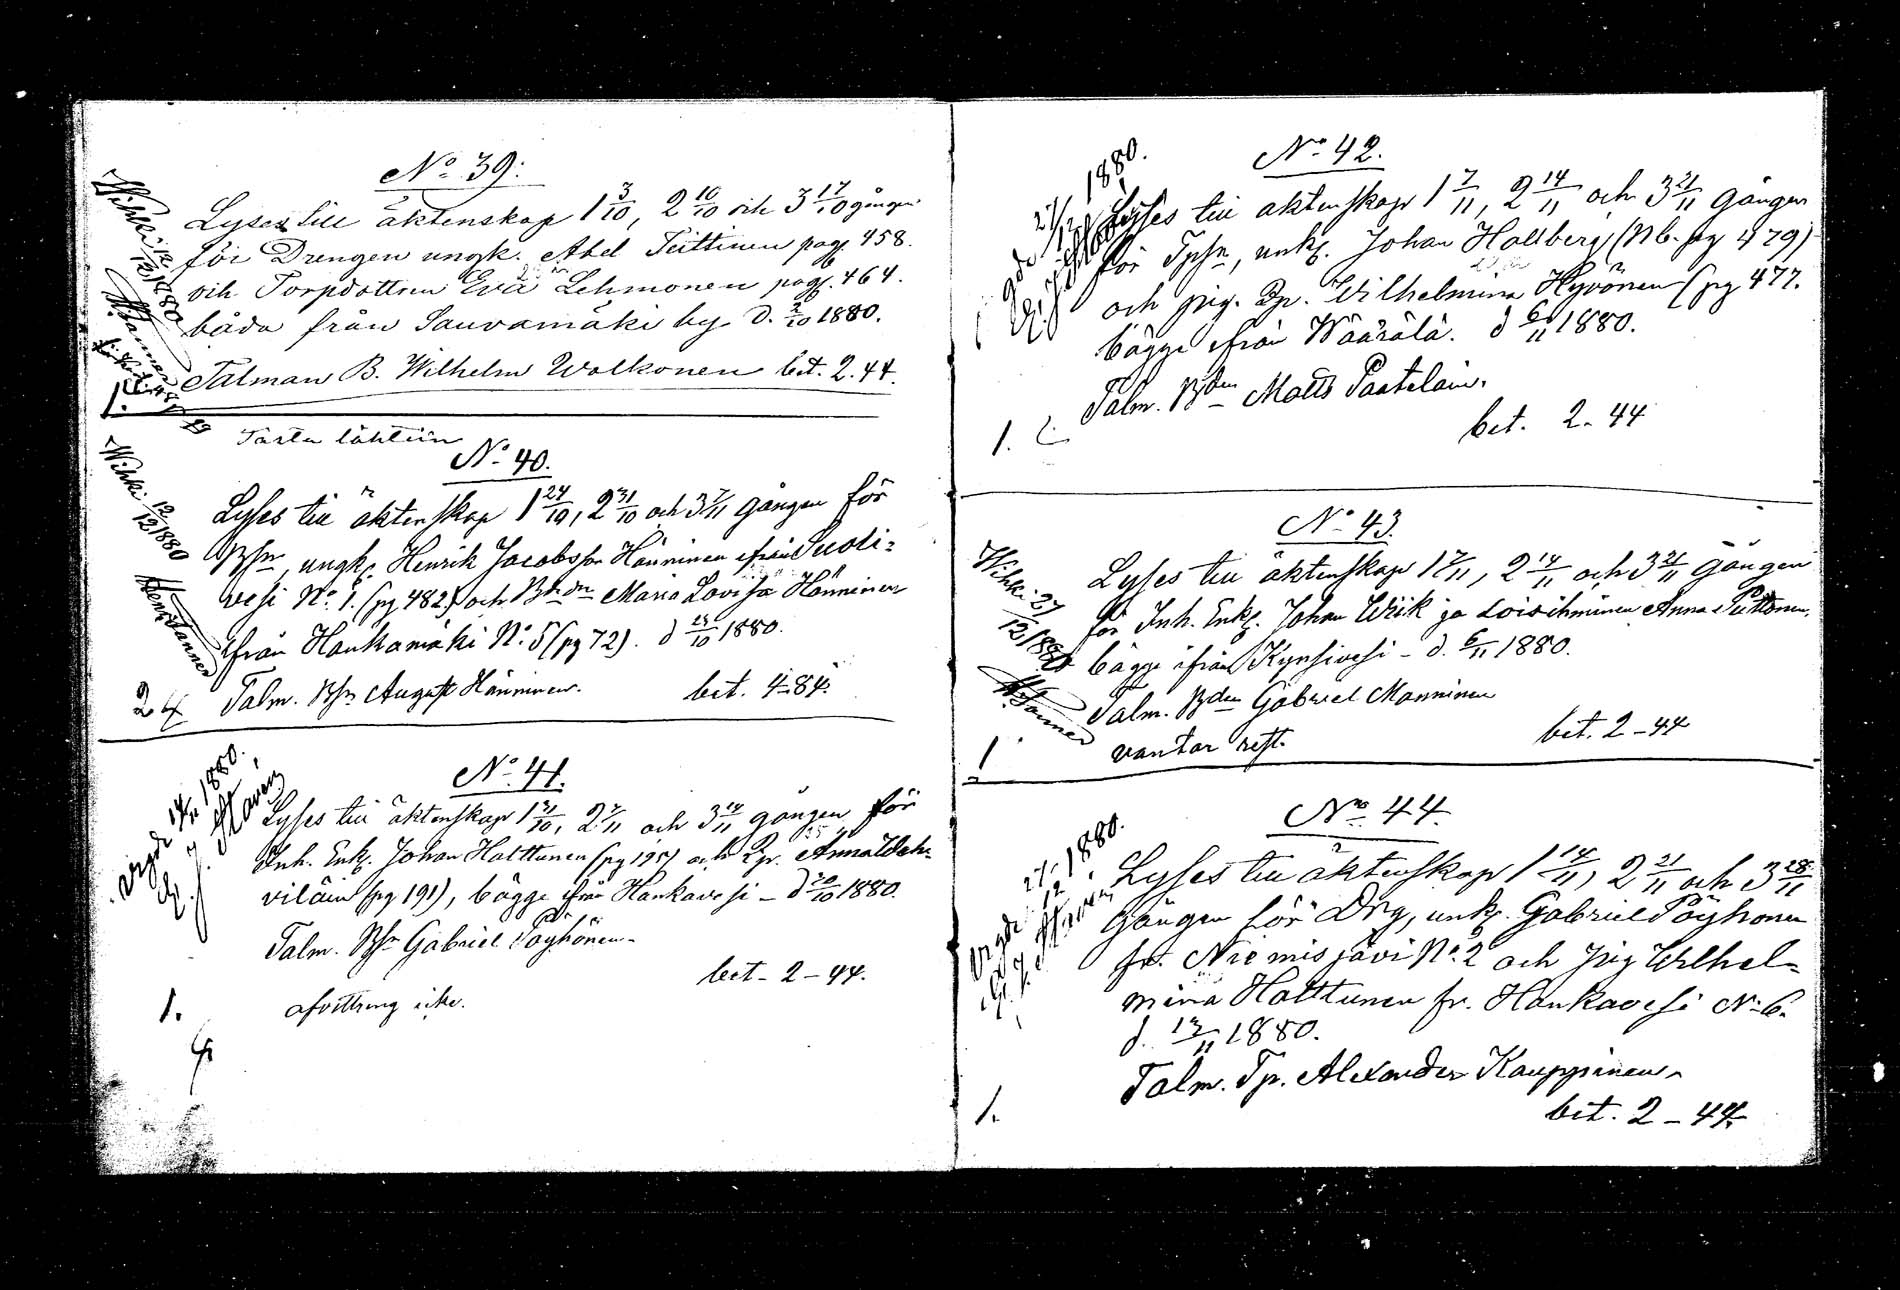 No 39.
Lyses till äktenskap 1 3/10, 2 10/10 och 3 17/10 gången
för Drengen ungk. Abel Tiittinen pag. 458.
och Torpdottren Eva Lehmonen pag. 464.
båda från Sauvamäki by d. 2/10 1880.
Talman B. Wilhelm Wolkonen bet. 2.44.
Wihki 12/12 1880
1.
Tästä lähtein
No 40.
Lyses till äktenskap 1 24/10, 2 31/10 och 3 7/11 gången för
Bsn, ungk. Henrik Jacobsson Hänninen ifrån Suoli=
vesi No 1. (pg 482) och Bdn Maria Lovisa Hänninen
ifrån Hankamäki No 5 (pg 72). d 23/10 1880.
Talm. Bsn August Hänninen. bet. 4-84.
Wihki 12/12 1880
2
No 41.
Lyses till äktenskap 1 31/10, 2 7/11 och 3 14/11 gången för
Inh. Enk. Johan Halttunen (pg 195) och Anna
viläin (pg 191), bägge ifrån Hankavesi - d 30/10 1880.
Talm. Bsn Gabriel Pöyhönen.
bet - 2 - 44.
afvittring icke.
vigde 14/11 1880.
1.
No 42.
Lyses till äktenskap 1 7/11, 2 14/11 och 3 21/11 gången
för Tpsn, unk. Johan Hallberg (Nb. pg 479)
och pig. Wilhelmina Hyvönen (pg 477.
bägge ifrån Wäärälä. d 6/11 1880.
Talm. Bden Matts Paatelain.
bet. 2-44
27/12 1880.
1.
No 43.
Lyses till äktenskap 1 7/11, 2 14/11 och 3 21/11 gången
för Inh. Enk. Johan Wiik ja Loisihminen Anna
bägge ifrån Kynsivesi - d. 6/11 1880.
Talm. Bden Gabriel Manninen
vantar rest. bet. 2-44
Wihki 27/12 1880
1
No 44.
Lyses till äktenskap 1 14/11, 2 21/11 och 3 28/11
gången för Drg, unk. Gabriel Pöyhönen
fr. Niemisjävi No 2 och pig Wilhel=
mina Halttunen fr. Hankavesi No 6.
d. 13/11 1880.
Talm. Tp. Alexander Kauppinen.
bet. 2-44.
vigde 27/12 1880.
1.